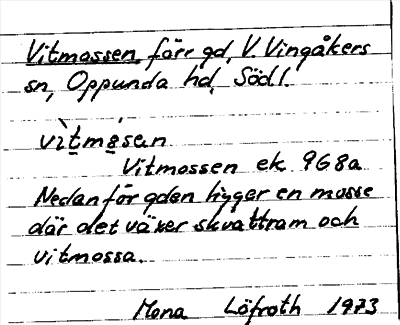 Vitmossen, förr gd, V Vingåkers
sn, Oppunda hd, Södl.
vìt̲må̲sen
Vitmossen ek. 9G8a
Nedanför gden ligger en mosse
där det växer skvattram och
vitmossa.
Mona Löfroth 1973